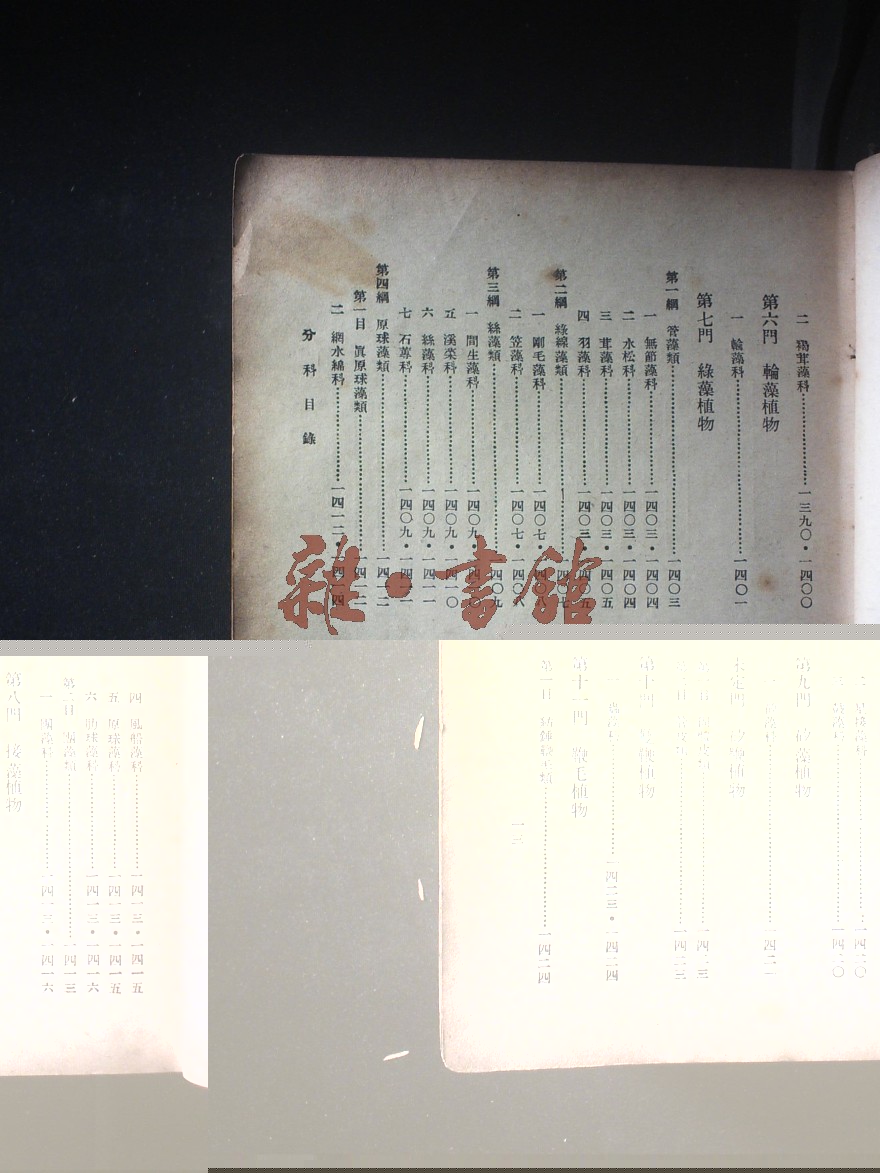 二　褐茸藻科……一三九〇・一四〇〇
第六門　輪藻植物
一　輪藻科……一四〇一
第七門　綠藻植物
第一綱　管藻類……一四〇三
一　無節藻科……一四〇三・一四〇四
二　水松科……一四〇三・一四〇四
三　茸藻科……一四〇三・一四〇五
四　羽藻科……一四〇三・一四〇五
第二綱　綠綿藻類……一四〇七
一　剛毛藻科……一四〇七・一四〇八
二　笠藻科……一四〇七・一四〇八
第三綱　絲藻類……一四〇九
一　間生藻科……一四〇九・一四一〇
五　溪菜科……一四〇九・一四一〇
六　絲藻科……一四〇九・一四一一
七　石蓴科……一四〇九・一四一一
第四綱　原球藻類……一四一二
第一目　眞原球藻類……一四一二
二　網水綿科……一四一二・一四一四
分科目錄
雜・書館
四　風船藻科……一四一三・一四一五
五　原球藻科……一四一三・一四一五
六　肋球藻科……一四一三・一四一六
第二目　團藻類……一四一三
一　團藻科……一四一三・一四一六
第八門　接藻植物
星接藻科……一四二〇
鼓藻科……一四二〇
第九門　矽藻植物
一　矽藻科……一四二一
未定門　矽鞭植物
一四二三
一四二三
第十門　雙鞭植物
一　藻科……一四二三・一四二四
第十一門　鞭毛植物
第一目　紡錘鞭毛類……一四二四
一三